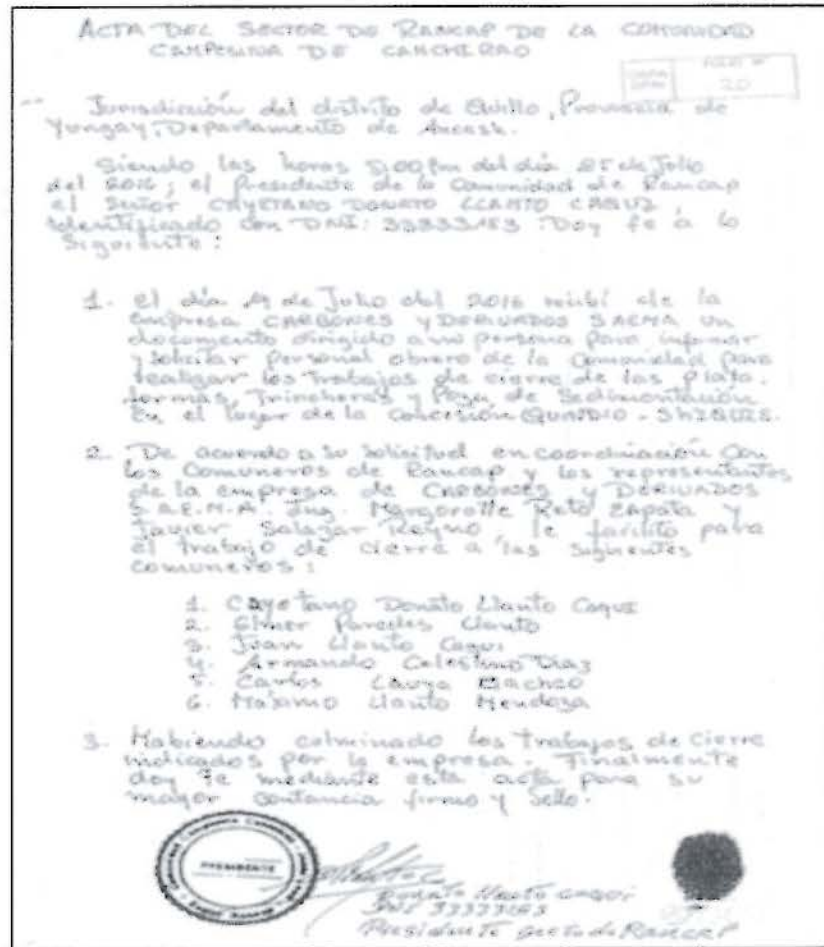 ACTA DEL SECTOR DE RANCAP DE LA COMUNIDAD
CAMPESINA DE CANCHIRAO
FOLIO Nº
20
Jurisdicción del distrito de Quillo, Provincia de
Yungay, Departamento de Ancash.
Siendo las horas 5:00 pm del día 25 de Julio
del 2016, el Presidente de la Comunidad de Rancap
el Señor CAYETANO DONATO LLANTO CAQUI,
Identificado con DNI: 33333183: Doy fe a lo
Siguiente:
1. el día de Julio del 2016 recibí de la
empresa CARBONES Y DERIVADOS SAEMA un
documento dirigido a mi persona para informar
y solicitar personal obrero de la Comunidad para
realizar los trabajos de cierre de las Plata-
formas, Trincheras y Poza de Sedimentación
En el lugar de la Concesión
2. De acuerdo a su solicitud en coordinación con
los Comuneros de Rancap y los representantes
de la empresa de CARBONES y DERIVADOS
S.A.E.M.A. Ing. Reto Zapata y
Javier Salazar Reyno, le facilito para
el trabajo de cierre a los siguientes
comuneros:
1. Cayetano Donato Llanto Caqui
2. Elmer Paredes Llanto
3. Juan Llanto Caqui
4. Armando Celestino Diaz
5. Carlos
6. Máximo Llanto Mendoza
3. Habiendo culminado los trabajos de cierre
indicados por la empresa. Finalmente
doy fe mediante esta acta para su
mayor contancia firmo y sello.
PRESIDENTE
Donato Llanto Caqui
DNI 33333183
Presidente de Rancap